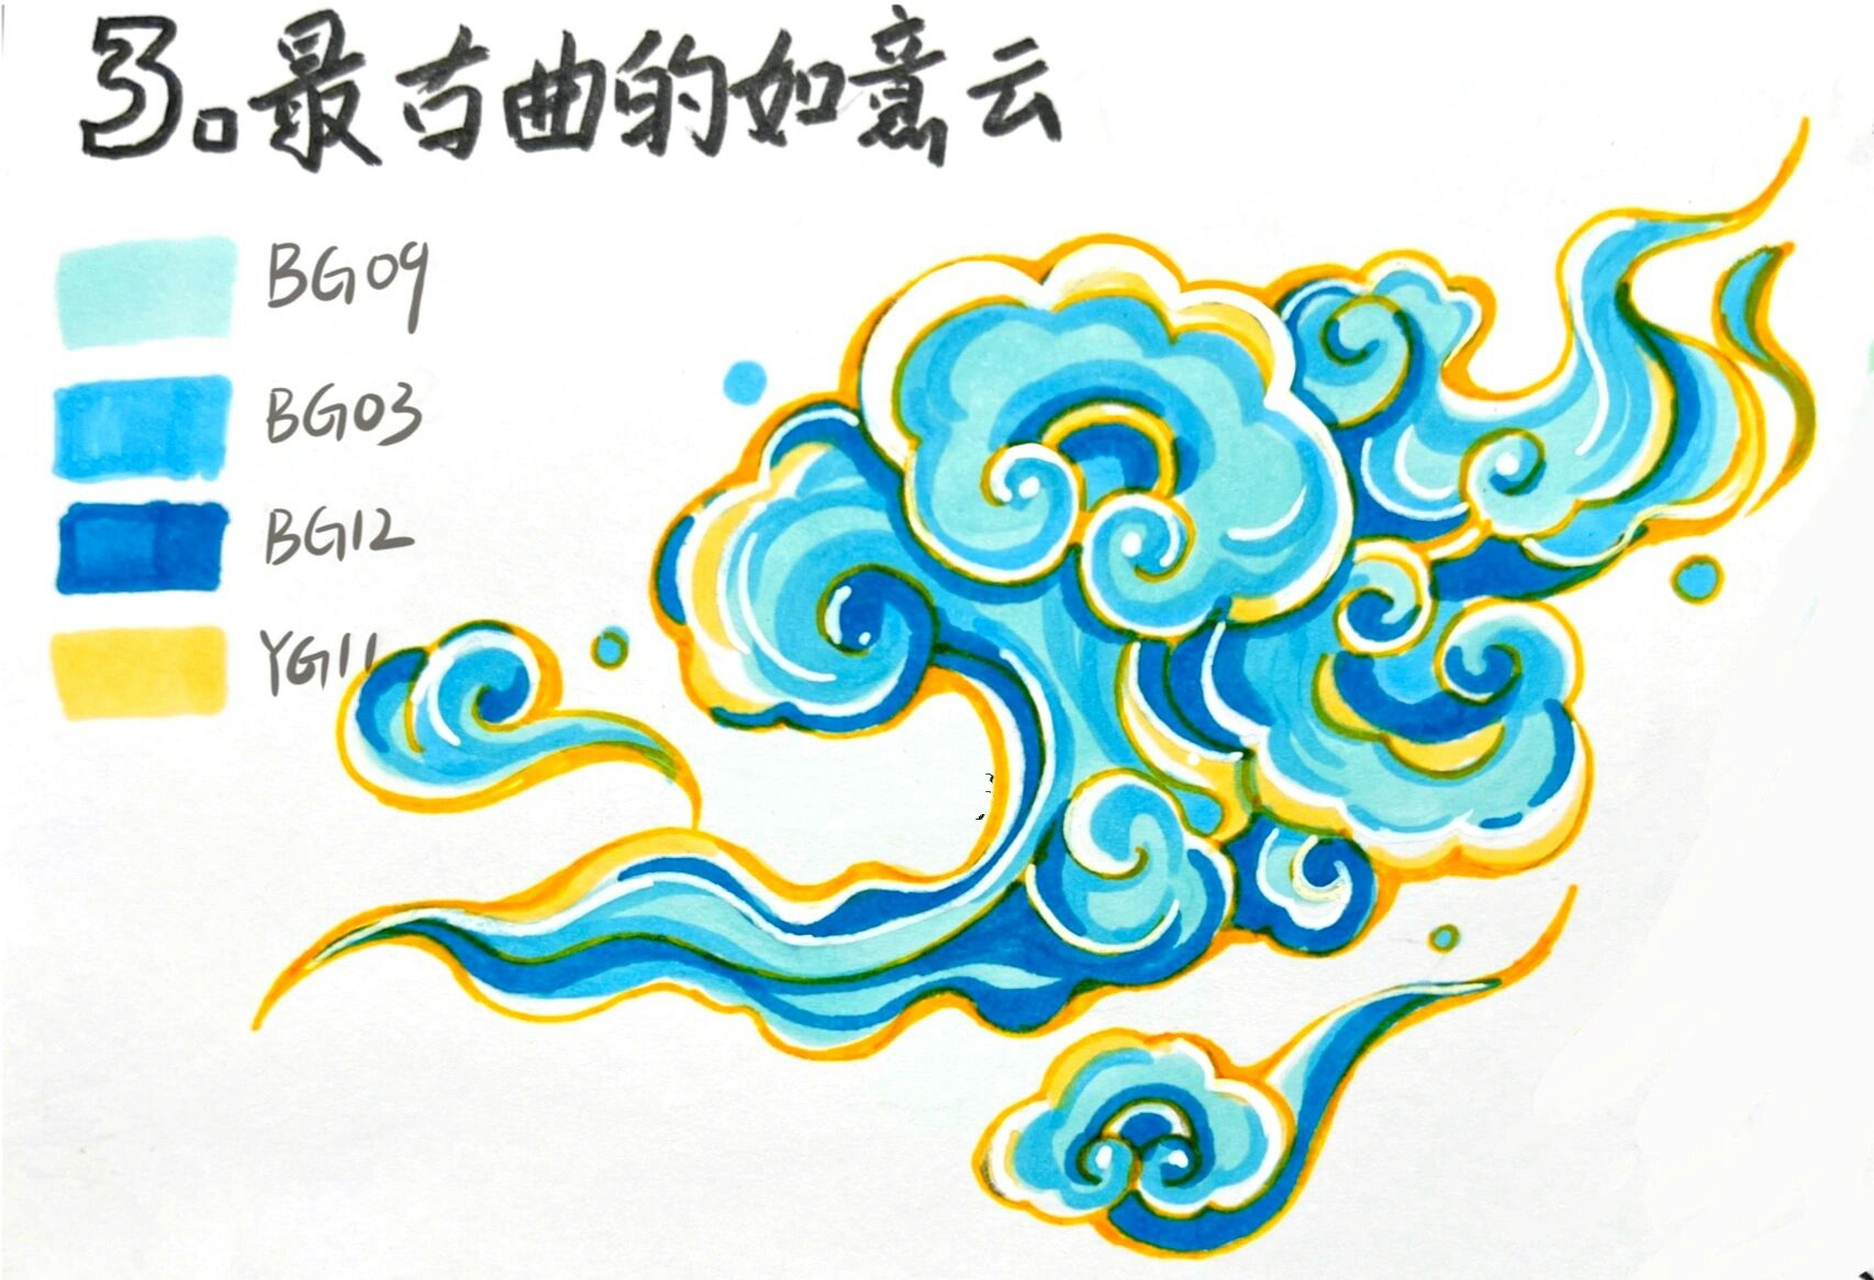 3。最古曲的如意云
BG09
BG03
BG12
YG11